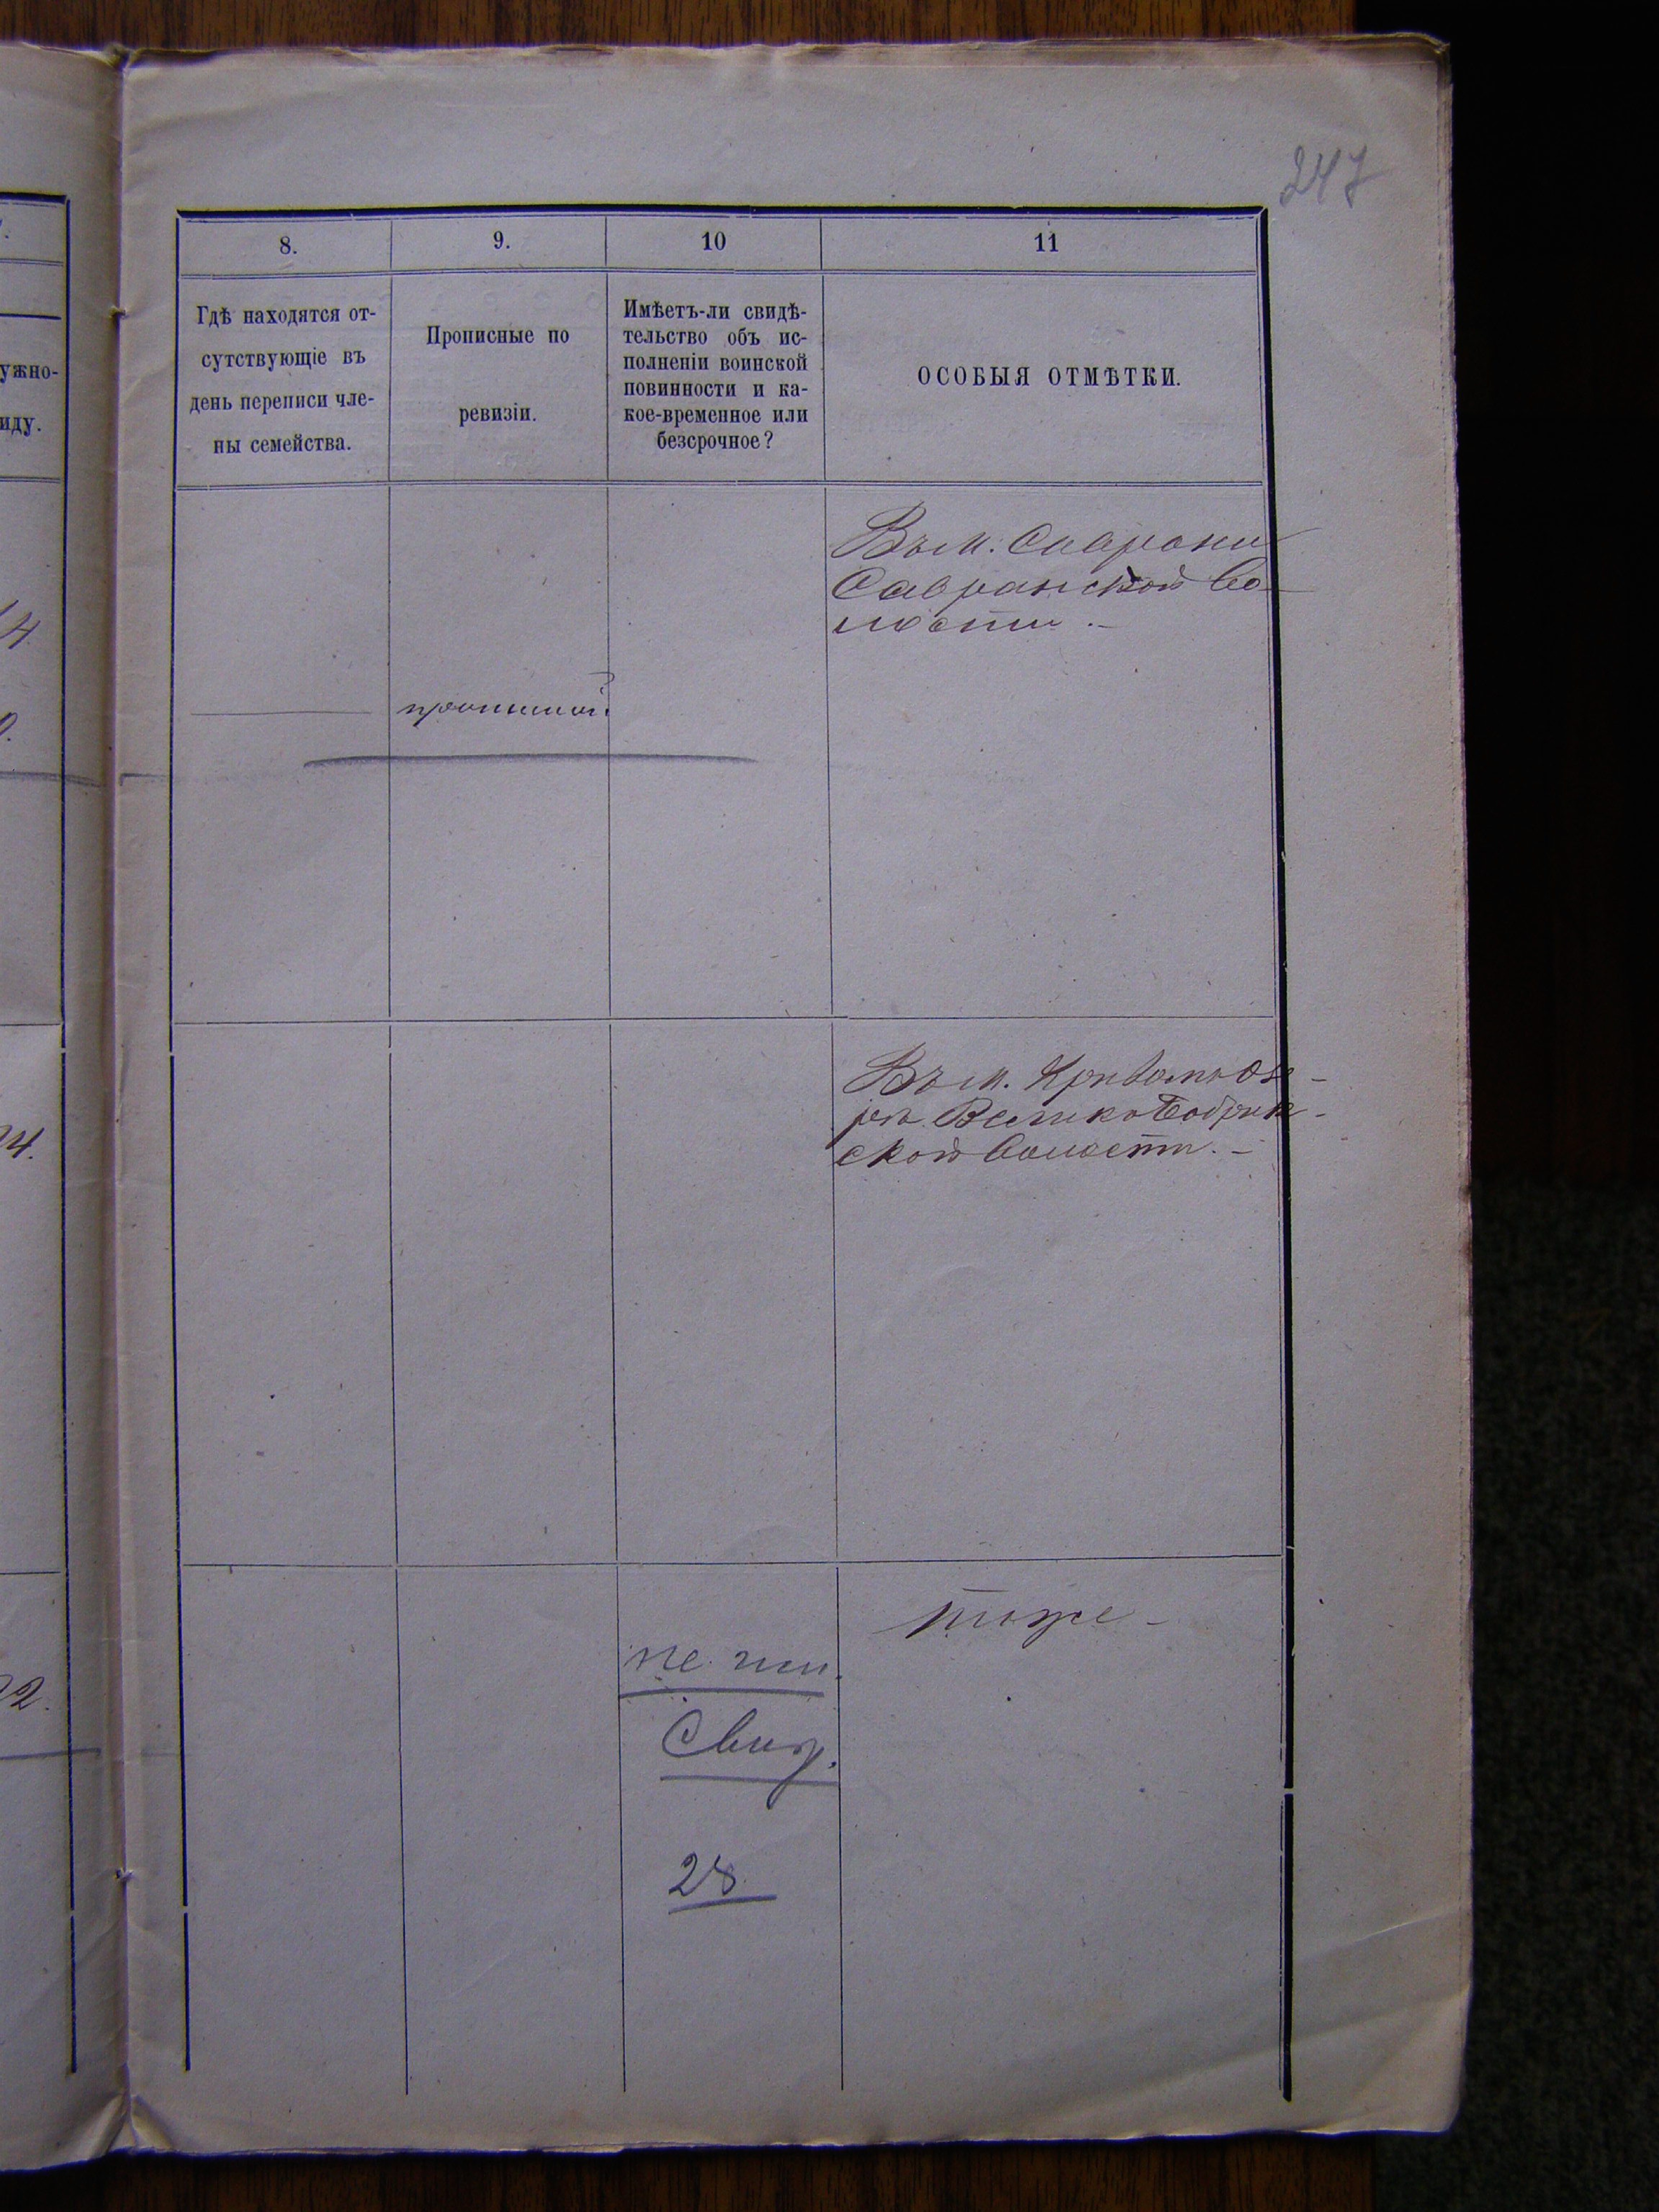 247
8.
9.
10
11
Гдѣ находятся от-
сутствующіе въ
день переписи чле-
ны семейства.
Прописные по
ревизіи.
Имѣетъ-ли свидѣ-
тельство объ ис-
полненіи воинской
повинности и ка-
кое-временное или
безсрочное?
ОСОБЫЯ ОТМѢТКИ.
ужно-
иду.
Въ м. Саврани
Савранской во-
лости.-
14.
0.
24.
Въ м. Кривомъ Озе-
рѣ Велико Бобрик-
ской волости.-
тоже-
не им.
Свид.
28
22.